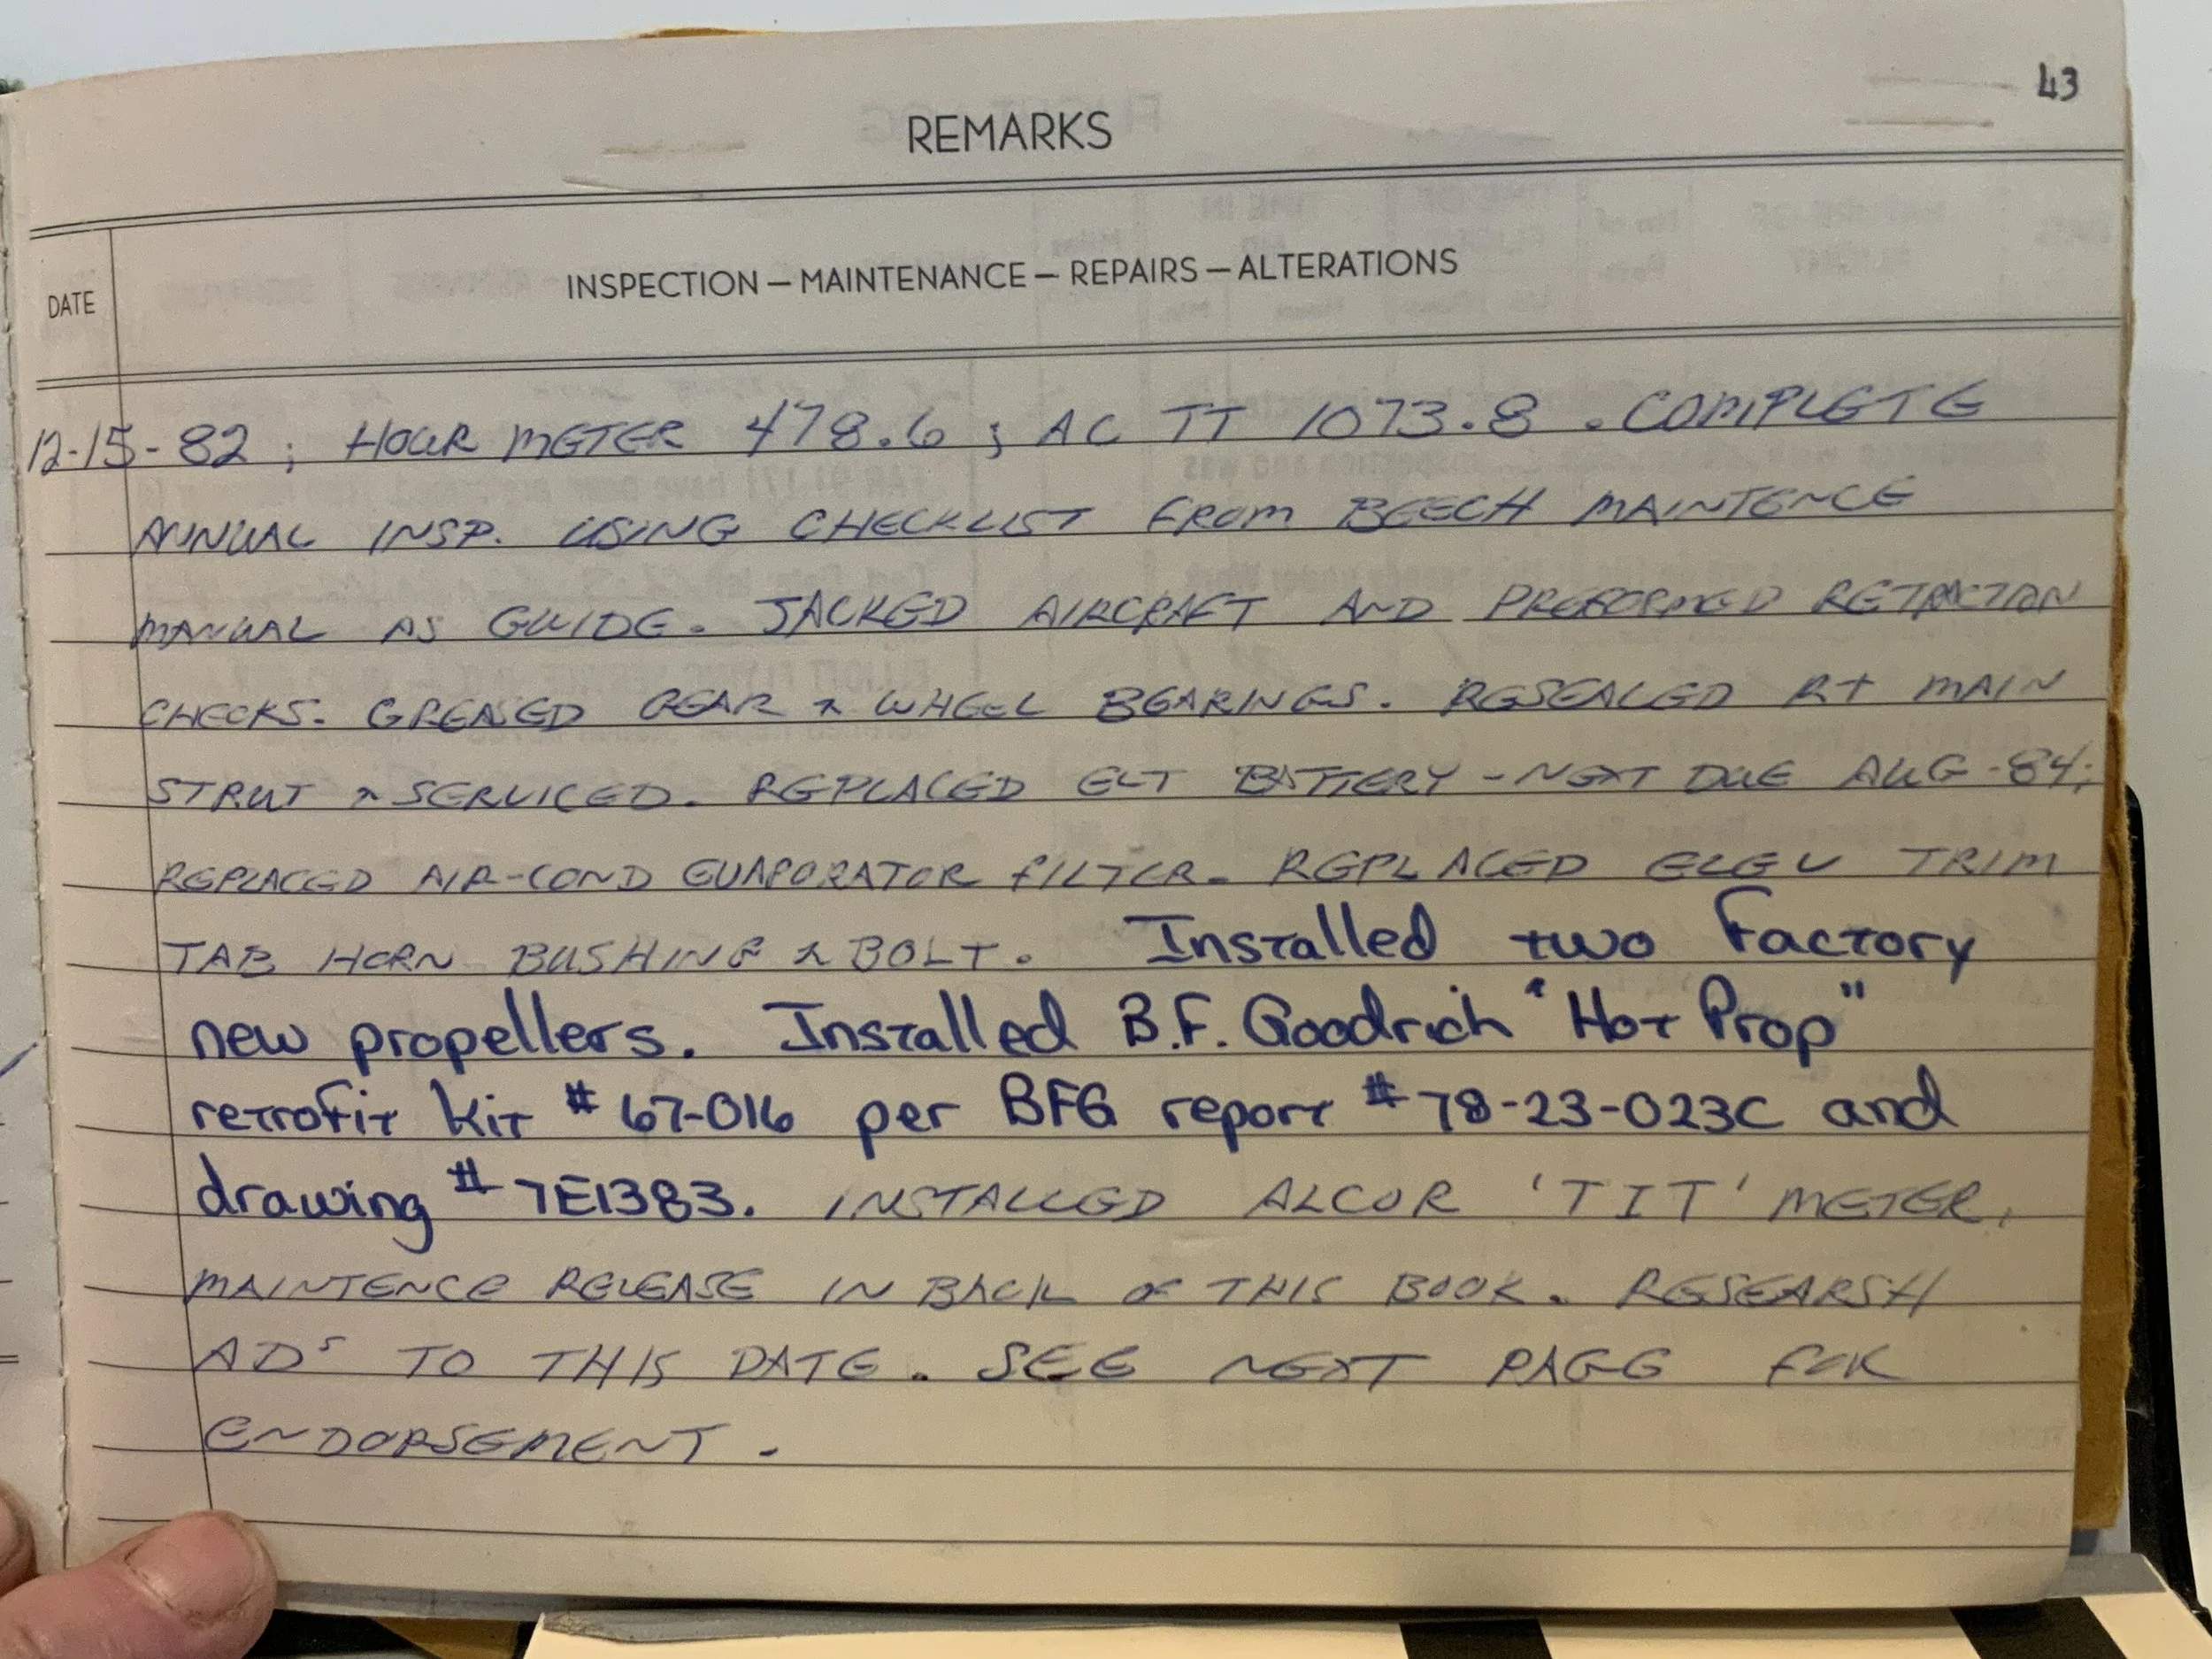 43
REMARKS
DATE
INSPECTION — MAINTENANCE — REPAIRS — ALTERATIONS
12-15-82 ; HOUR METER 478.6 ; AC TT 1073.8 . COMPLETE
ANNUAL INSP. USING CHECKLIST FROM BEECH MAINTENCE
MANUAL AS GUIDE. JACKED AIRCRAFT AND PREFORMED RETRACTION
CHECKS. GREASED GEAR & WHEEL BEARINGS. RESEALED RT MAIN
STRUT & SERVICED. REPLACED ELT BATTERY - NEXT DUE AUG-84;
REPLACED AIR-COND EVAPORATOR FILTER. REPLACED ELEV TRIM
TAB HORN BUSHING & BOLT. Installed two Factory
new propellers. Installed B.F. Goodrich "Hot Prop"
retrofit kit # 67-016 per BFG report # 78-23-023C and
drawing # 7E1383. INSTALLED ALCOR 'TIT' METER,
MAINTENCE RELEASE IN BACK OF THIS BOOK. RESEARSH
ADS TO THIS DATE. SEE NEXT PAGE FOR
ENDORSEMENT.